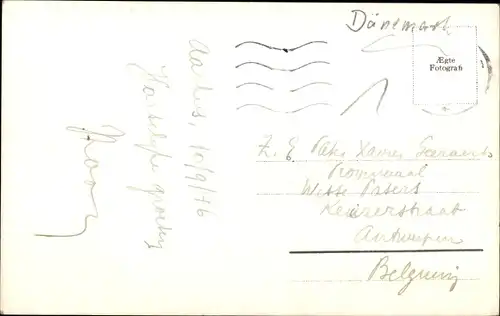 Dänemark
Ægte
Fotografi
Aarhus, 10/9/76
Hartelijke groeten
Z. E. Pater Xavier Geeraerts
Provinciaal
Witte Paters
Keizerstraat
Antwerpen
Belgium